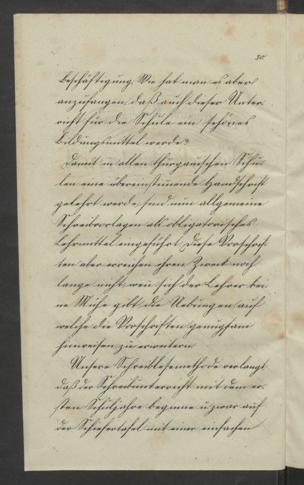 30
Beschäftigung. Wie hat man es aber
anzufangen, daß auch dieser Unter
richt für die Schule ein schönes
Bildungsmittel werde?
Damit in allen thurgauischen Schu
len eine übereinstimmende Handschrift
gelehrt werde sind nun allgemeine
Schreibvorlagen als obligatorisches
Lehrmittel eingeführt. Diese Vorschrif
ten aber erreichen ihren Zweck noch
lange nicht, wenn sich der Lehrer kei
ne Mühe gibt die Uebungen auf
welche die Vorschriften genugsam
hinweisen, zu erweitern.
Unsere Schreiblesemethode verlangt
daß der Schreibunterricht mit dem er
sten Schuljahre beginne u. zwar auf
der Schiefertafel mit einer einfachen